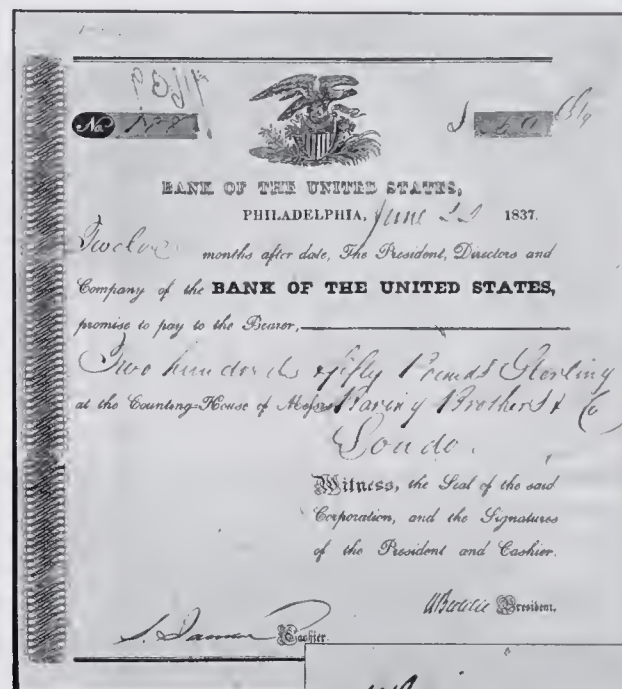 No
BANK OF THE UNITED STATES,
PHILADELPHIA, June 1837.
Twelve months after date, The President, Directors and
Company of the BANK OF THE UNITED STATES,
promise to pay to the Bearer,
Two hundred & fifty Pounds Sterling
at the Counting-House of Messrs Baring Brothers & Co
London.
Witness, the Seal of the said
Corporation, and the Signatures
of the President and Cashier.
N Biddle President.
Cashier.